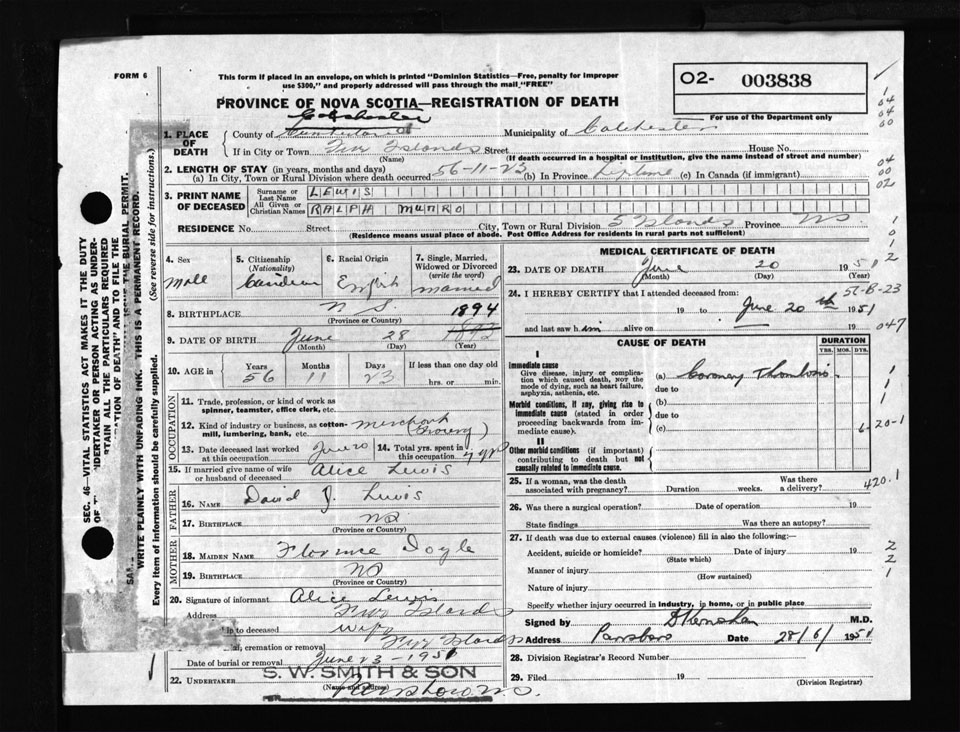 FORM 6
This form if placed in an envelope, on which is printed "Dominion Statistics—Free, penalty for improper
use $300," and properly addressed will pass through the mail "FREE"
O2- 003838
For use of the Department only
PROVINCE OF NOVA SCOTIA—REGISTRATION OF DEATH
Colchester
1. PLACE OF DEATH
County of Cumberland Municipality of Colchester
If in City or Town Five Islands Street House No.
(Name) (If death occurred in a hospital or institution, give the name instead of street and number)
2. LENGTH OF STAY (in years, months and days)
(a) In City, Town or Rural Division where death occurred 56-11-23 (b) In Province Lifetime (c) In Canada (if immigrant)
3. PRINT NAME OF DECEASED
Surname or Last Name LEWIS
All Given or Christian Names RALPH MUNRO
RESIDENCE No. Street City, Town or Rural Division 5 Islands Province NS
(Residence means usual place of abode. Post Office Address for residents in rural parts not sufficient)
4. Sex
Male
5. Citizenship
(Nationality)
Canadian
6. Racial Origin
English
7. Single, Married,
Widowed or Divorced
(write the word)
married
8. BIRTHPLACE N S.
(Province or Country)
1894
9. DATE OF BIRTH June 28
(Month) (Day) (Year)
10. AGE in
Years Months Days If less than one day old
56 11 23 hrs. or min.
OCCUPATION
11. Trade, profession, or kind of work as
spinner, teamster, office clerk, etc.
12. Kind of industry or business, as cotton-
mill, lumbering, bank, etc. merchant
(Grocery)
13. Date deceased last worked
at this occupation June 20
14. Total yrs. spent in
this occupation 7 yrs
15. If married give name of wife
or husband of deceased Alice Lewis
FATHER
16. NAME David J. Lewis
17. BIRTHPLACE NS
(Province or Country)
MOTHER
18. MAIDEN NAME Florence Doyle
19. BIRTHPLACE NS
(Province or Country)
20. Signature of informant Alice Lewis
Address Five Islands
to deceased wife
cremation or removal Five Islands
Date of burial or removal June 23 - 1951
22. UNDERTAKER S. W. SMITH & SON
(Name and address)
Parrsboro N.S.
MEDICAL CERTIFICATE OF DEATH
23. DATE OF DEATH June 20 1951
(Month) (Day) (Year)
24. I HEREBY CERTIFY that I attended deceased from:
19 to June 20th 1951
and last saw him alive on 19
CAUSE OF DEATH
DURATION
YRS. MOS. DYS.
I
Immediate cause
Give disease, injury or compli-
cation which caused death, NOT the
mode of dying, such as heart failure,
asphyxia, asthenia, etc.
(a) Coronary Thrombosis
due to
Morbid conditions, if any, giving rise to
immediate cause (stated in order
proceeding backwards from im-
mediate cause).
(b)
due to
(c)
II
Other morbid conditions (if important)
contributing to death but not
causally related to immediate cause.
25. If a woman, was the death
associated with pregnancy? Duration weeks. Was there
a delivery?
26. Was there a surgical operation? Date of operation 19
State findings Was there an autopsy?
27. If death was due to external causes (violence) fill in also the following:—
Accident, suicide or homicide? Date of injury 19
(State which)
Manner of injury
(How sustained)
Nature of injury
Specify whether injury occurred in industry, in home, or in public place
Signed by M.D.
Address Parrsboro Date 28/6/1951
28. Division Registrar's Record Number
29. Filed 19
(Division Registrar)
SEC. 46—VITAL STATISTICS ACT MAKES IT THE DUTY
NDERTAKER OR PERSON ACTING AS UNDER-
TAIN ALL THE PARTICULARS REQUIRED
RATION OF DEATH AND TO FILE THE
THE BURIAL PERMIT.
WRITE PLAINLY WITH UNFADING INK. THIS IS A PERMANENT RECORD.
Every item of information should be carefully supplied. (See reverse side for instructions.)
1
04
04
00
04
00
02
1
0
1
2
047
1
1
1
6-20-1
420.1
2
2
1